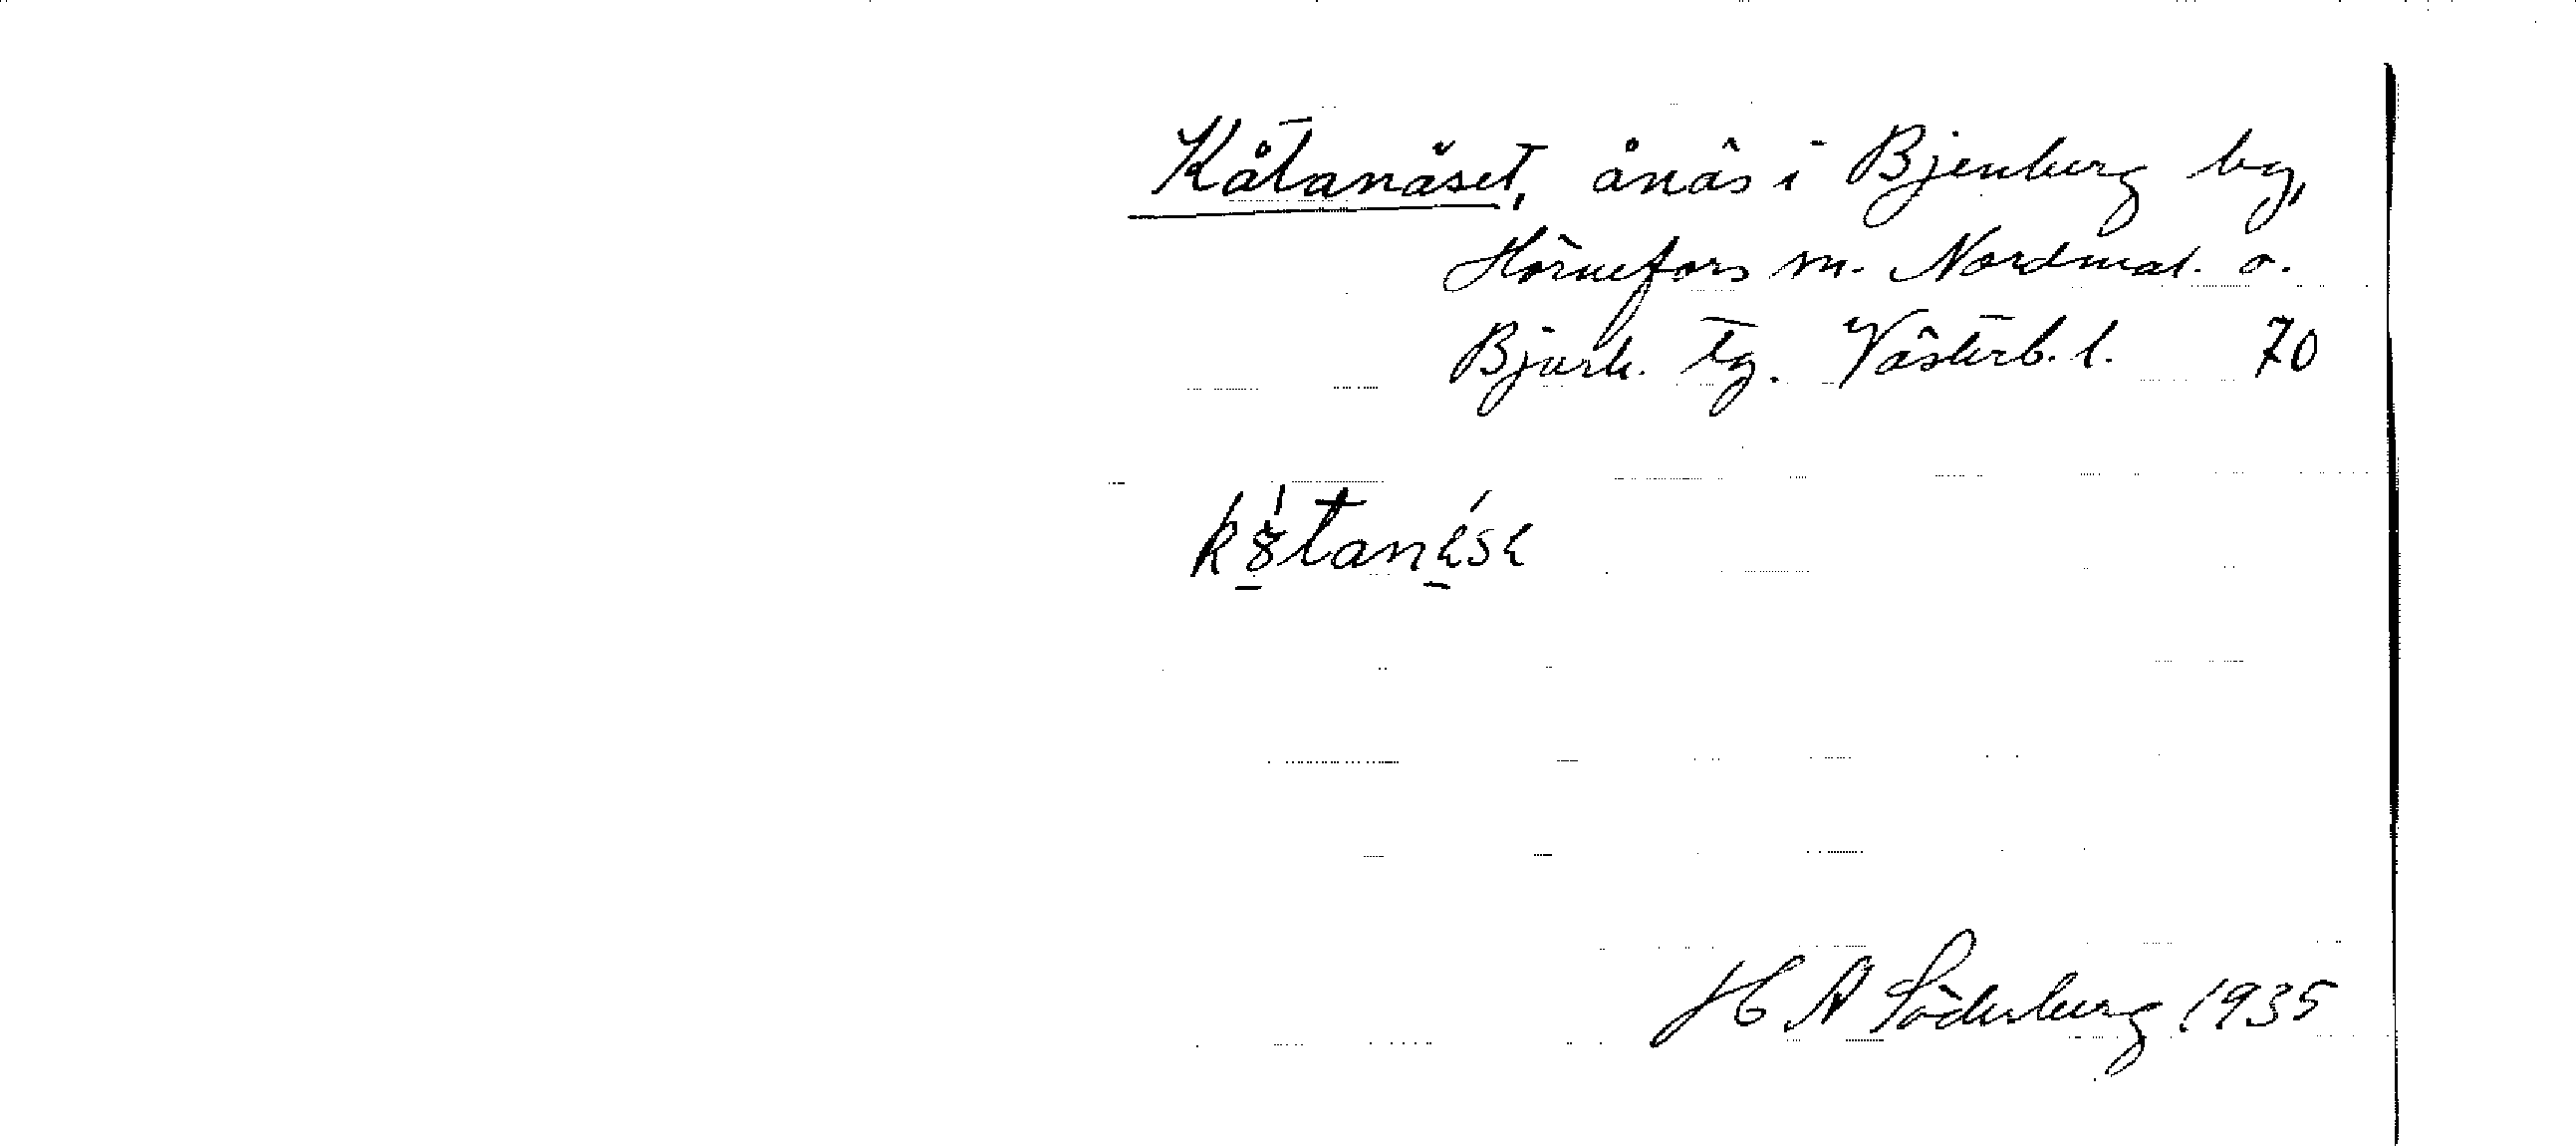 Kåtanäset, ånäs i Bjenberg by,
Hörnefors sn. Nordmal. o.
Bjurh. tg. Västerb. l. 70
H A Söderberg 1935